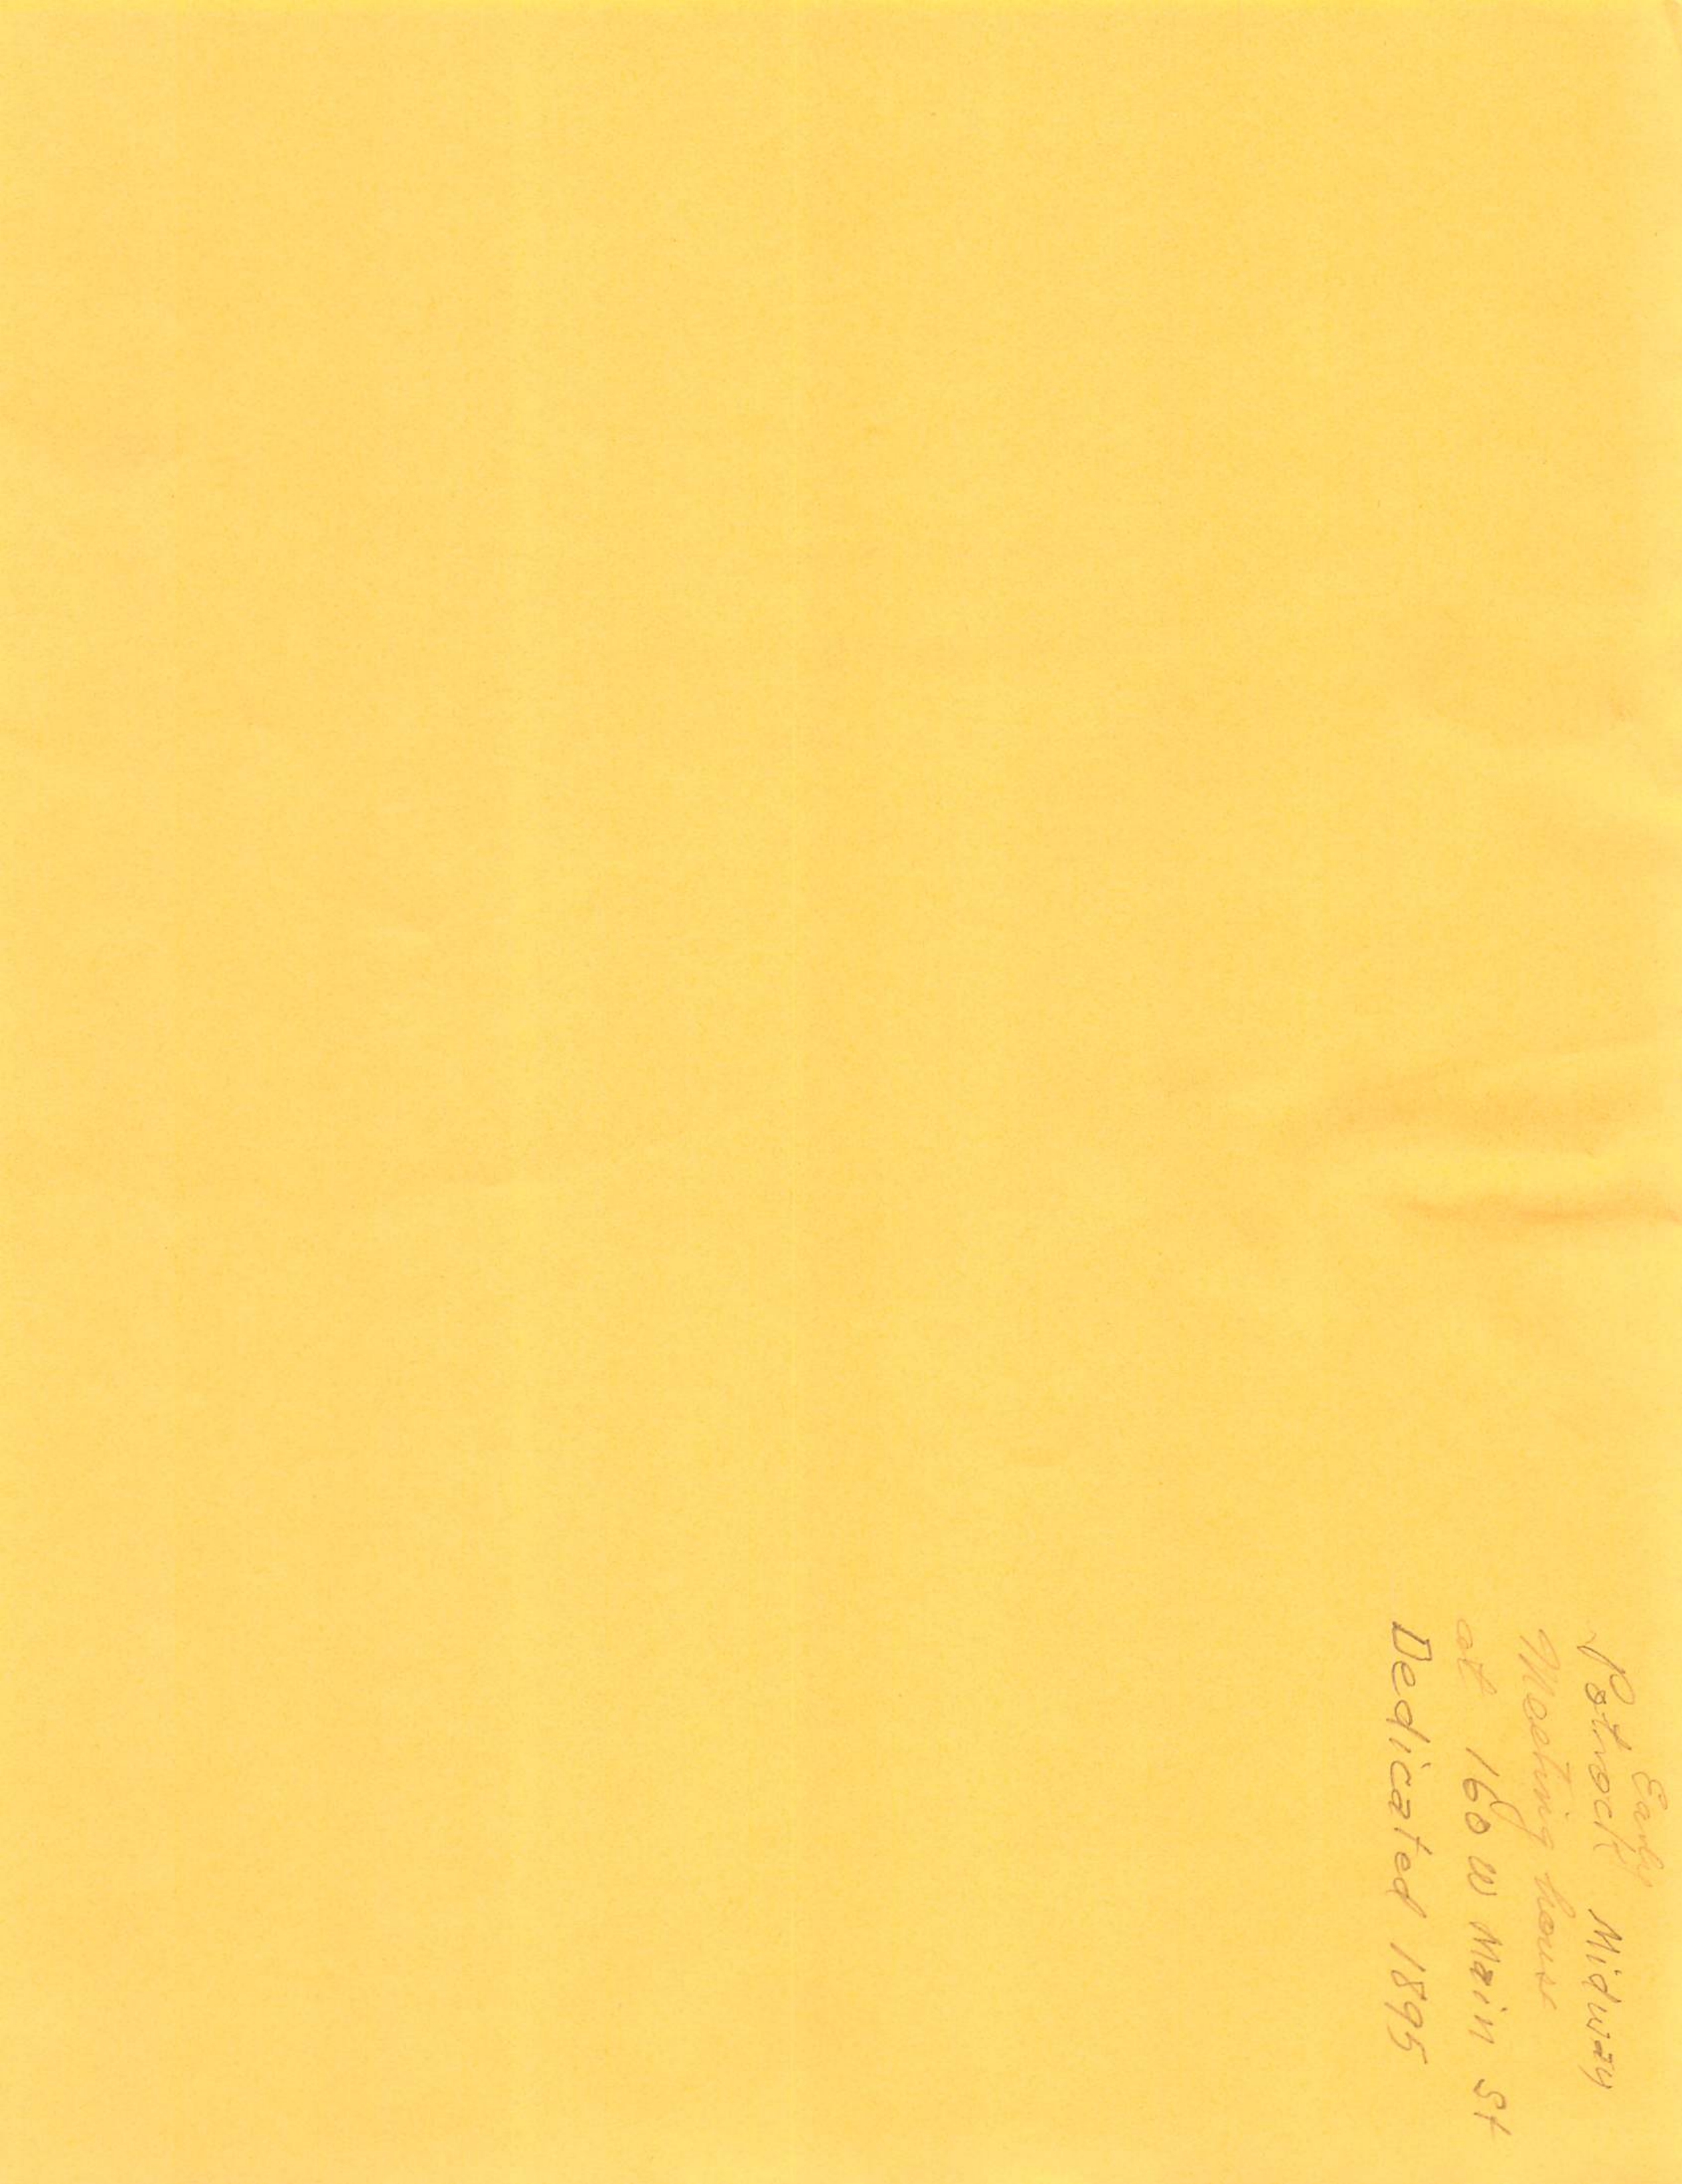 Early
Potrock Midway
Meeting house
at 160 W Main St
Dedicated 1895